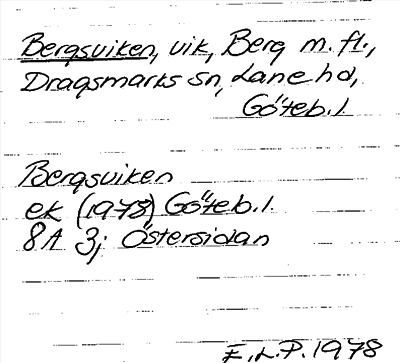 Bergsviken, vik, Berg m. fl.,
Dragsmarks sn, Lane hd,
Göteb. l.
Bergsviken
ek (1978) Göteb. l.
8A 3j Östersidan
E.L.P. 1978